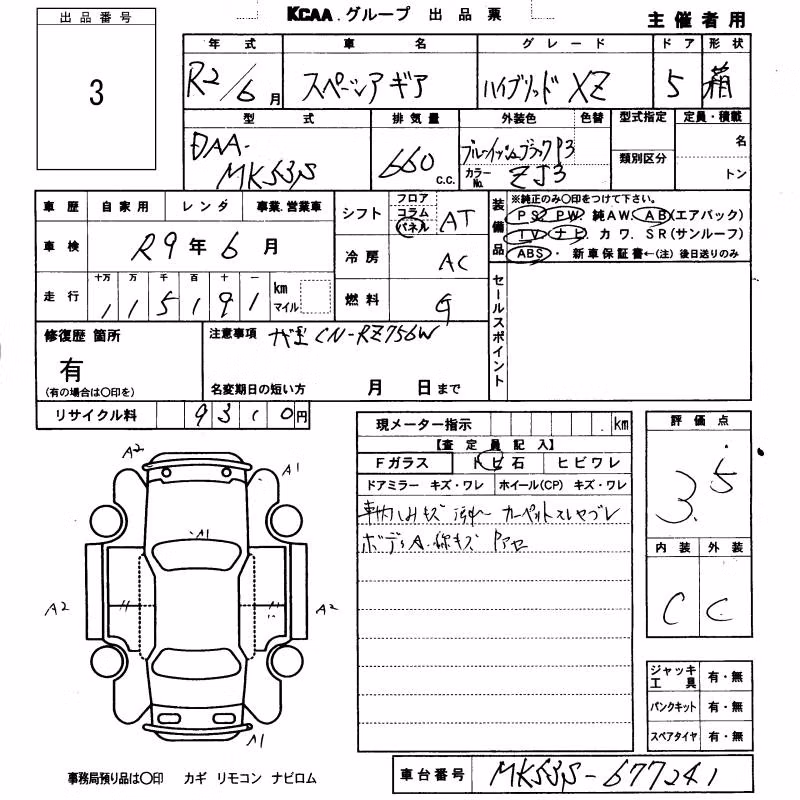 出品番号
3
KCAA.グループ 出品票
主催者用
年式 車名 グレード ドア 形状
R2/6月 スペーシアギア ハイブリッド XZ 5 箱
型式 排気量 外装色 色替 型式指定 定員・積載
DAA-MK53S 660c.c. ブルーイッシュブラックP3 カラーNo. ZJ3 類別区分 名 トン
車歴 自家用 レンタ 事業.営業車
車検 R9年6月
走行 十万 万 千 百 十 一
115191 km マイル
シフト フロア コラム パネル AT
冷房 AC
燃料 G
装備品 ※純正のみ○印をつけて下さい。
PS PW 純AW. AB(エアバック)
TV ナビ カワ. SR(サンルーフ)
ABS・新車保証書←(注)後日送りのみ
セールスポイント
修復歴 箇所
有
(有の場合は○印を)
注意事項 ナビ CN-RZ756W
名変期日の短い方 月 日まで
リサイクル料 9310円
現メーター指示 . km
【査定員記入】
Fガラス トビ石 ヒビワレ
ドアミラー キズ・ワレ ホイール(CP) キズ・ワレ
車内しみキズ 汚れ カーペットスレヤブレ
ボディA.線キズ
評価点
3.5
内装 外装
C C
ジャッキ工具 有・無
パンクキット 有・無
スペアタイヤ 有・無
A2
A1
A1
A2
A2
A1
事務局預り品は○印 カギ リモコン ナビロム
車台番号 MK53S-677241